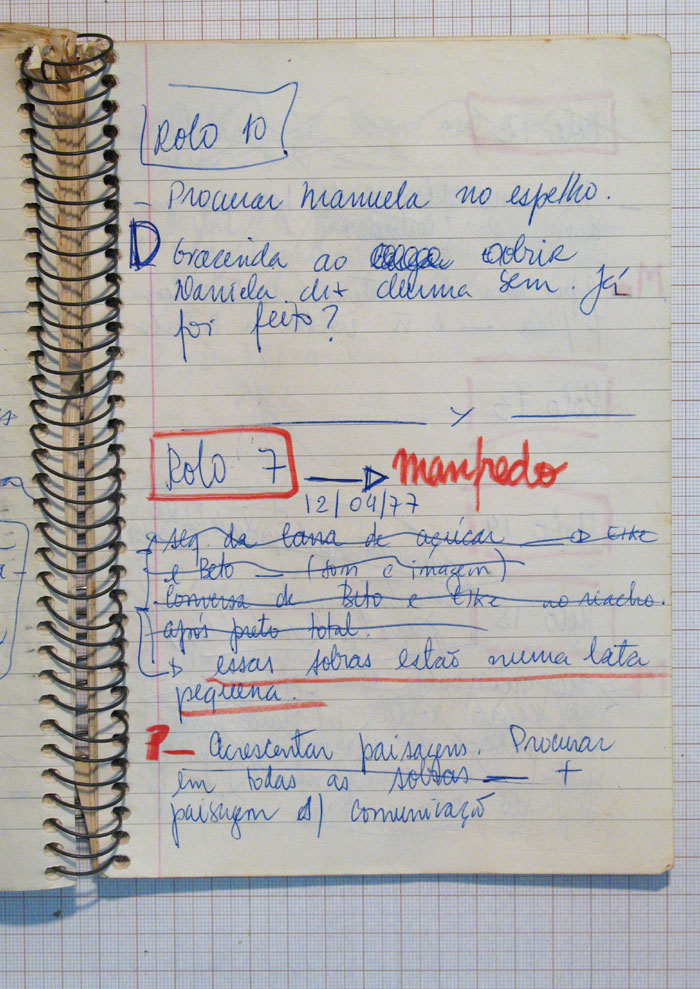 Rolo 10
- Procurar Manuela no espelho.
D Gracinda ao abrir
Daniela. dix deuma sem. Já
foi feito?
Rolo 7 → manfredo
12/04/77
seq da cana de açúcar → Elke
e Beto — (som e imagem)
Conversa de Beto e Elke no riacho.
após preto total.
essas sobras estão numa lata
pequena.
?- Acrescentar paisagens. Procurar
em todas as sobras — +
paisagem s/ comunicação